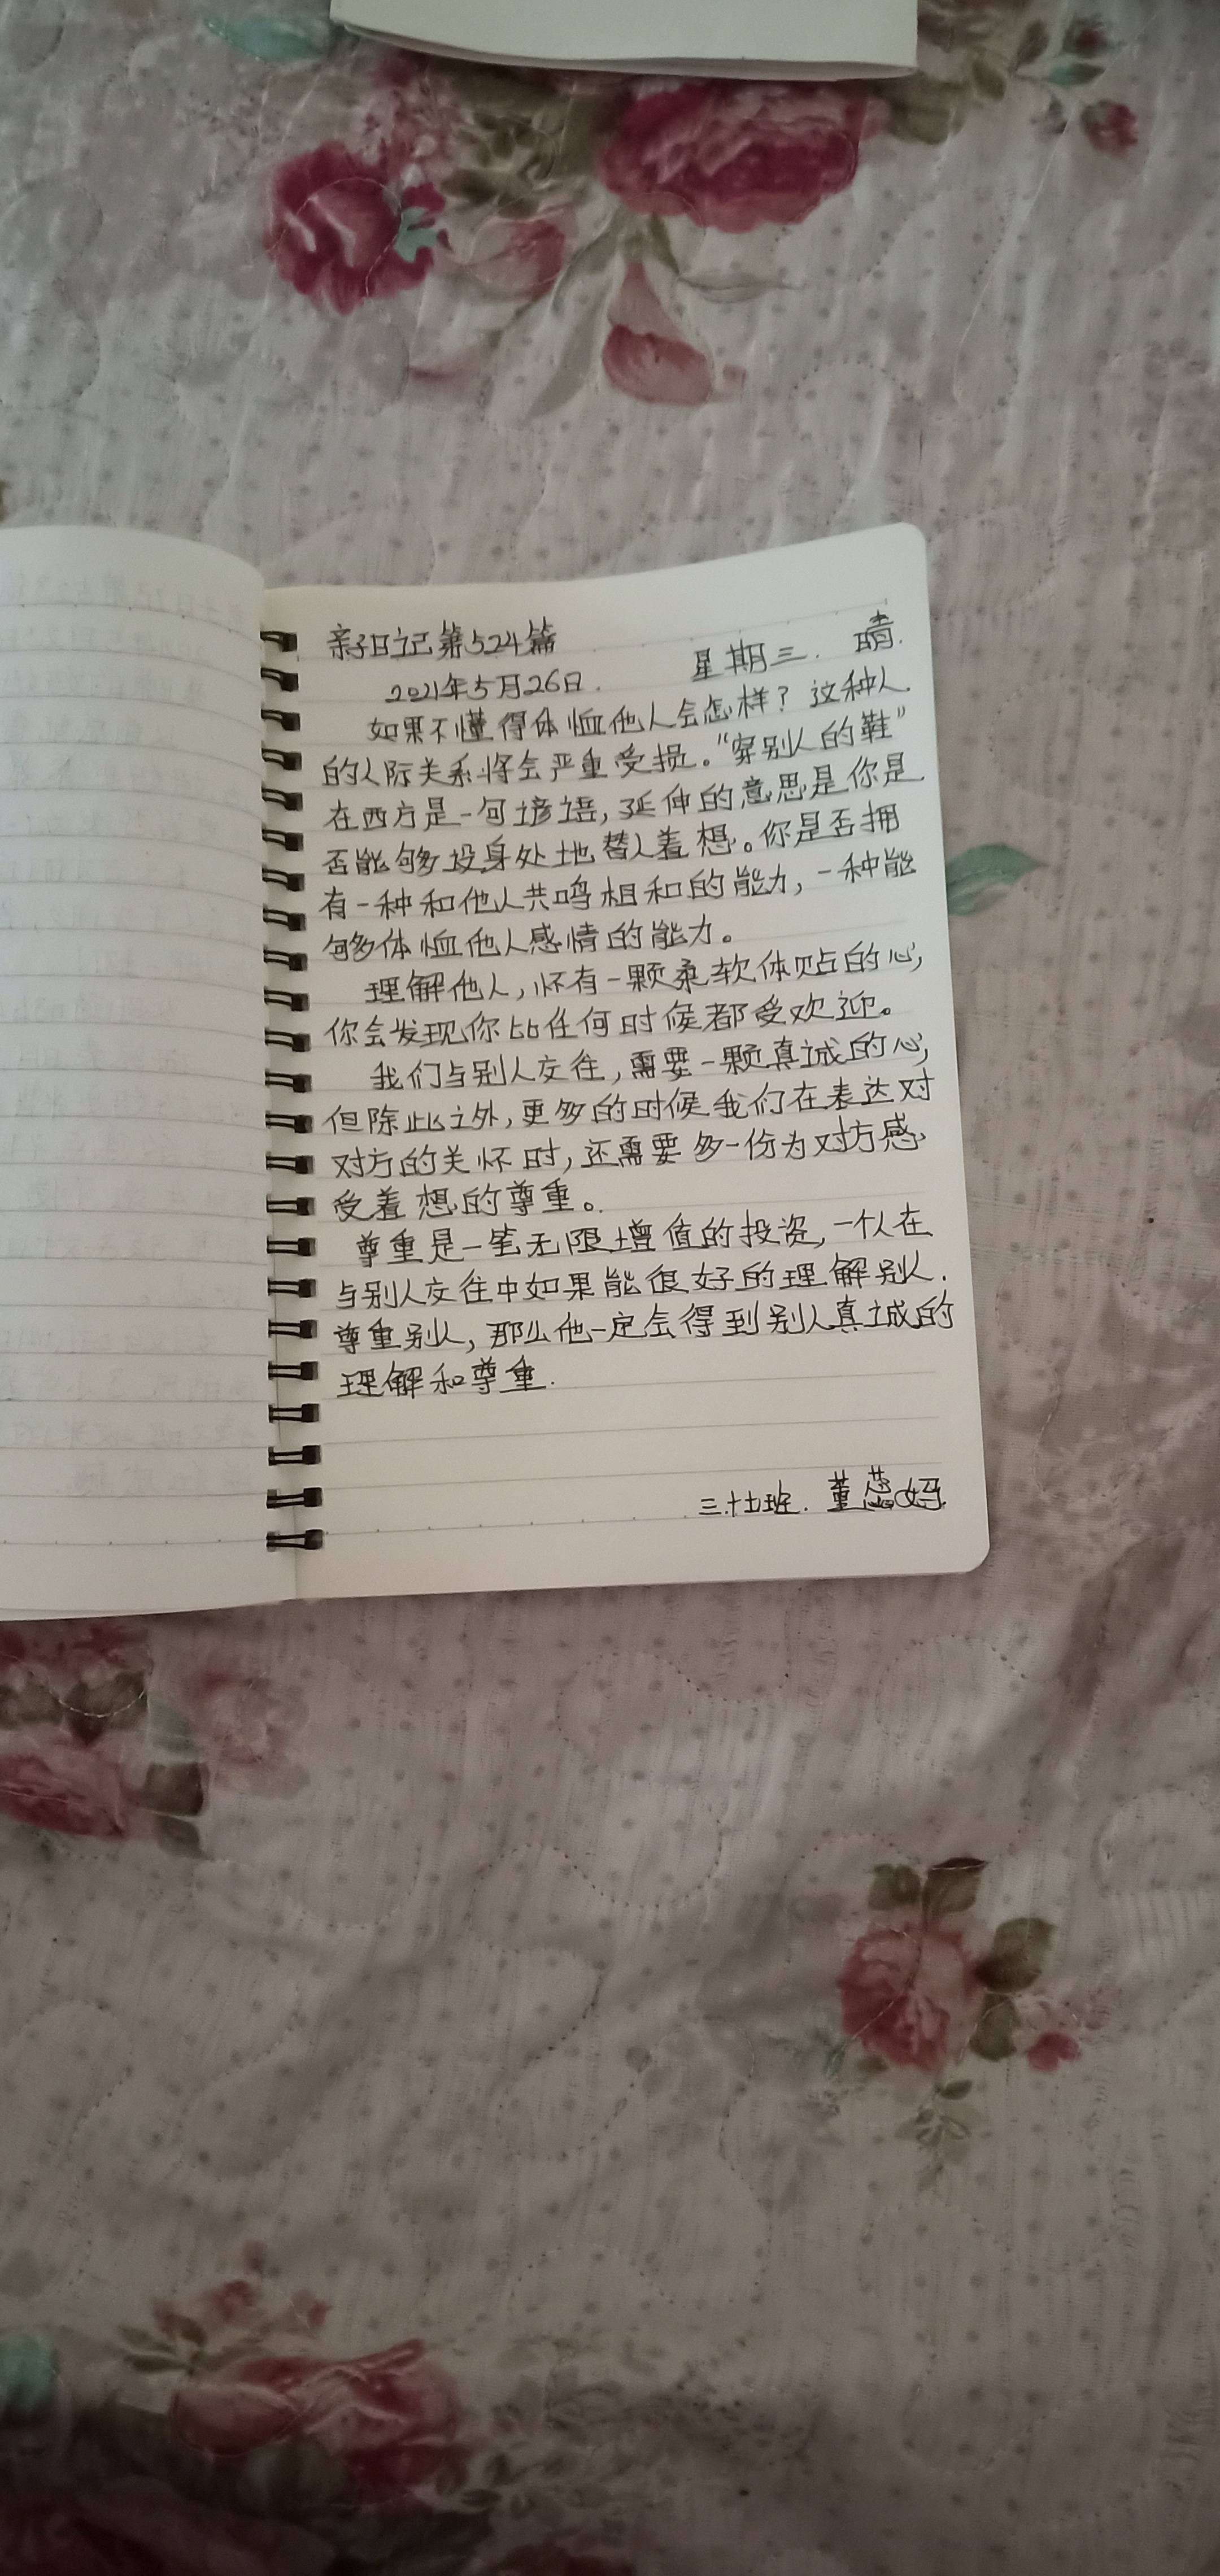 亲子日记第524篇
2021年5月26日. 星期三. 晴.
如果不懂得体恤他人会怎样？这种人
的人际关系将会严重受损。“穿别人的鞋”
在西方是一句谚语,延伸的意思是你是
否能够设身处地替人着想。你是否拥
有一种和他人共鸣相和的能力,一种能
够体恤他人感情的能力。
理解他人,怀有一颗柔软体贴的心,
你会发现你比任何时候都受欢迎。
我们与别人交往,需要一颗真诚的心,
但除此之外,更多的时候我们在表达对
对方的关怀时,还需要多一份为对方感
受着想的尊重。
尊重是一笔无限增值的投资,一个人在
与别人交往中如果能很好的理解别人.
尊重别人,那么他一定会得到别人真诚的
理解和尊重.
三.班. 董蕊妈